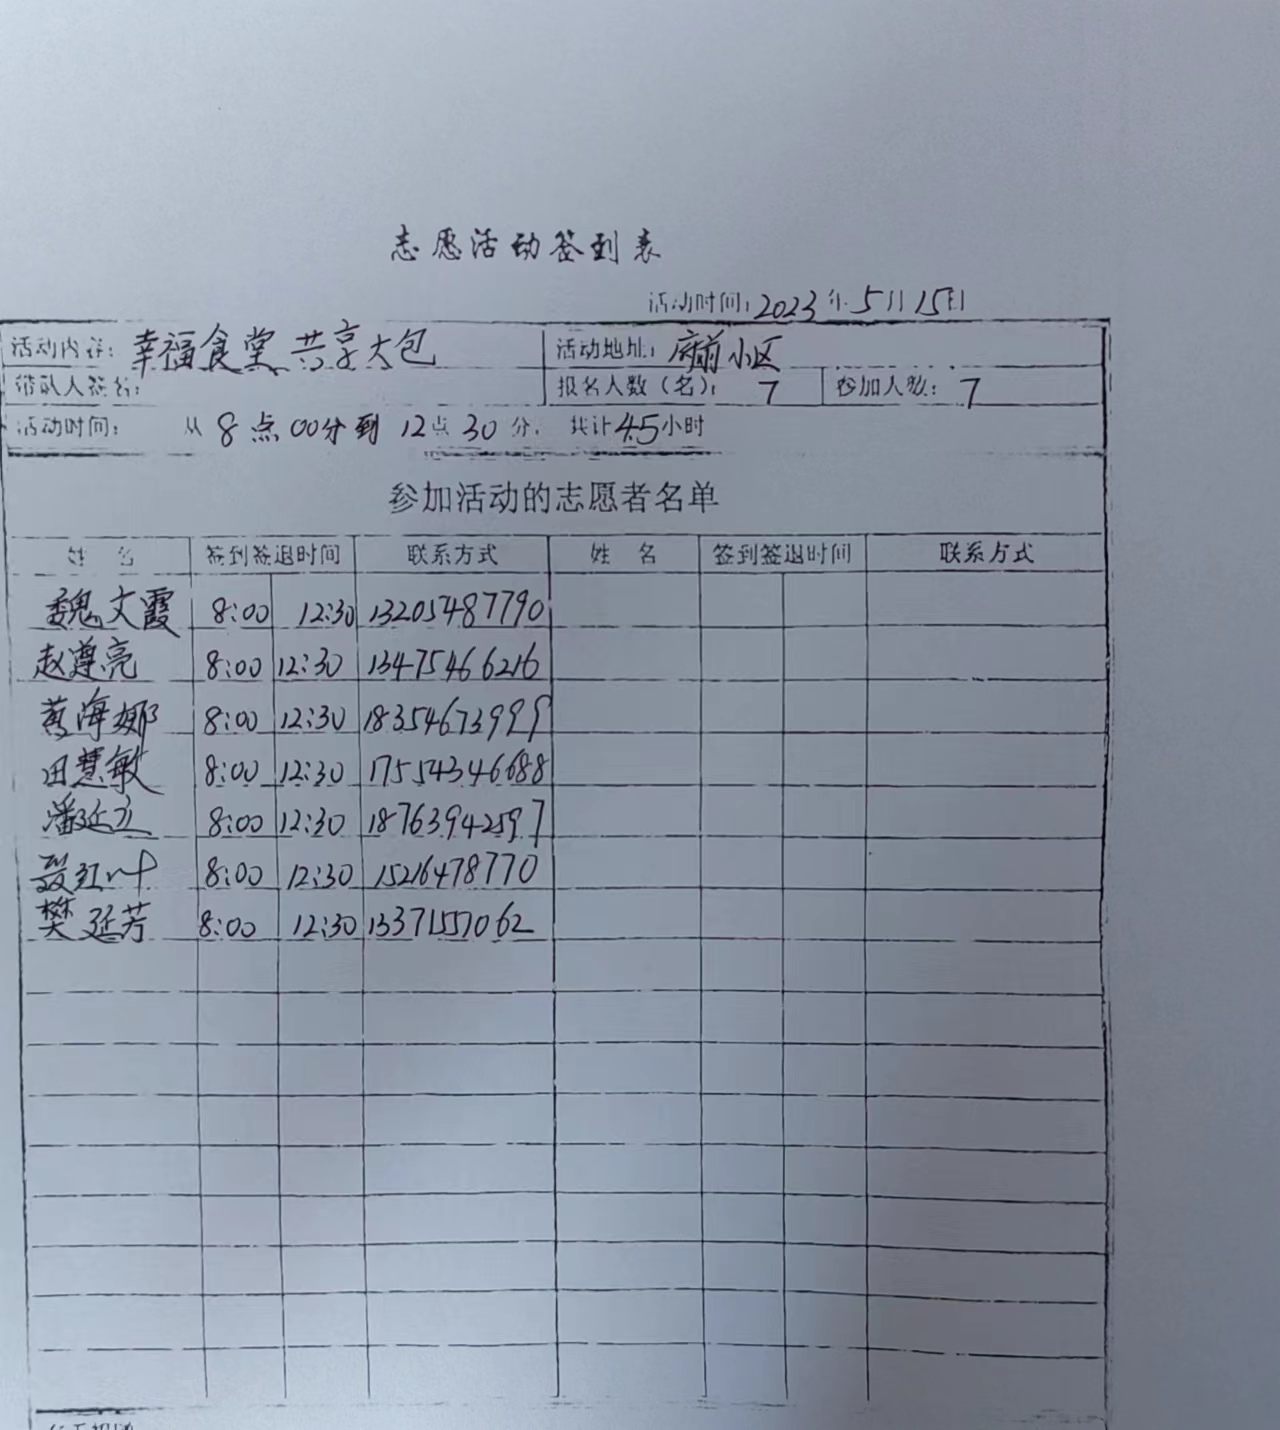 志愿活动签到表
活动时间：2023年5月15日
活动内容：幸福食堂 共享大包 活动地址：府前小区
带队人签名： 报名人数（名）：7 参加人数：7
活动时间： 从8点00分到12点30分，共计4.5小时
参加活动的志愿者名单
姓 名 签到签退时间 联系方式 姓 名 签到签退时间 联系方式
魏文霞 8:00 12:30 13205487790
赵遵亮 8:00 12:30 13475466216
黄海娜 8:00 12:30 18354673999
田慧敏 8:00 12:30 17554346688
潘延立 8:00 12:30 18763942597
聂红叶 8:00 12:30 15216478770
樊延芳 8:00 12:30 13371557062